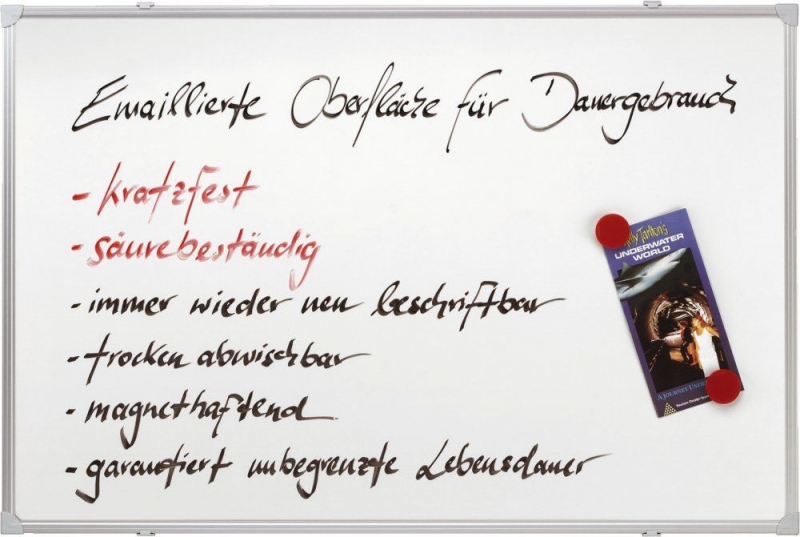 Emaillierte Oberfläche für Dauergebrauch
- kratzfest
- säurebeständig
- immer wieder neu beschriftbar
- trocken abwischbar
- magnethaftend
- garantiert unbegrenzte Lebensdauer
Tarlton's
UNDERWATER
WORLD
A JOURNEY